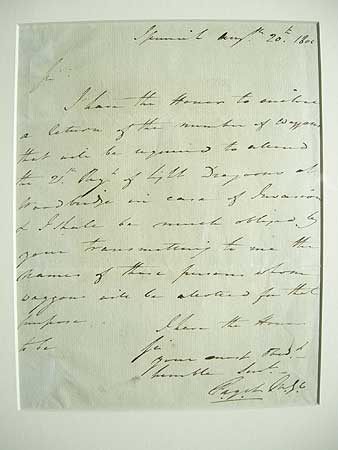 Ipswich Augst. 20th. 180
Sir
I have the Honor to enclose
a return of the number of Waggons
that will be required to attend
the 21st. Regt. of Light Dragoons at
Woodbridge in case of Invasion
& I shall be much obliged by
your transmitting to me the
names of those persons whose
waggons will be allotted for that
purpose.
I have the Honor
to be
Sir
your most Obed.t
humble Servt.
Paget